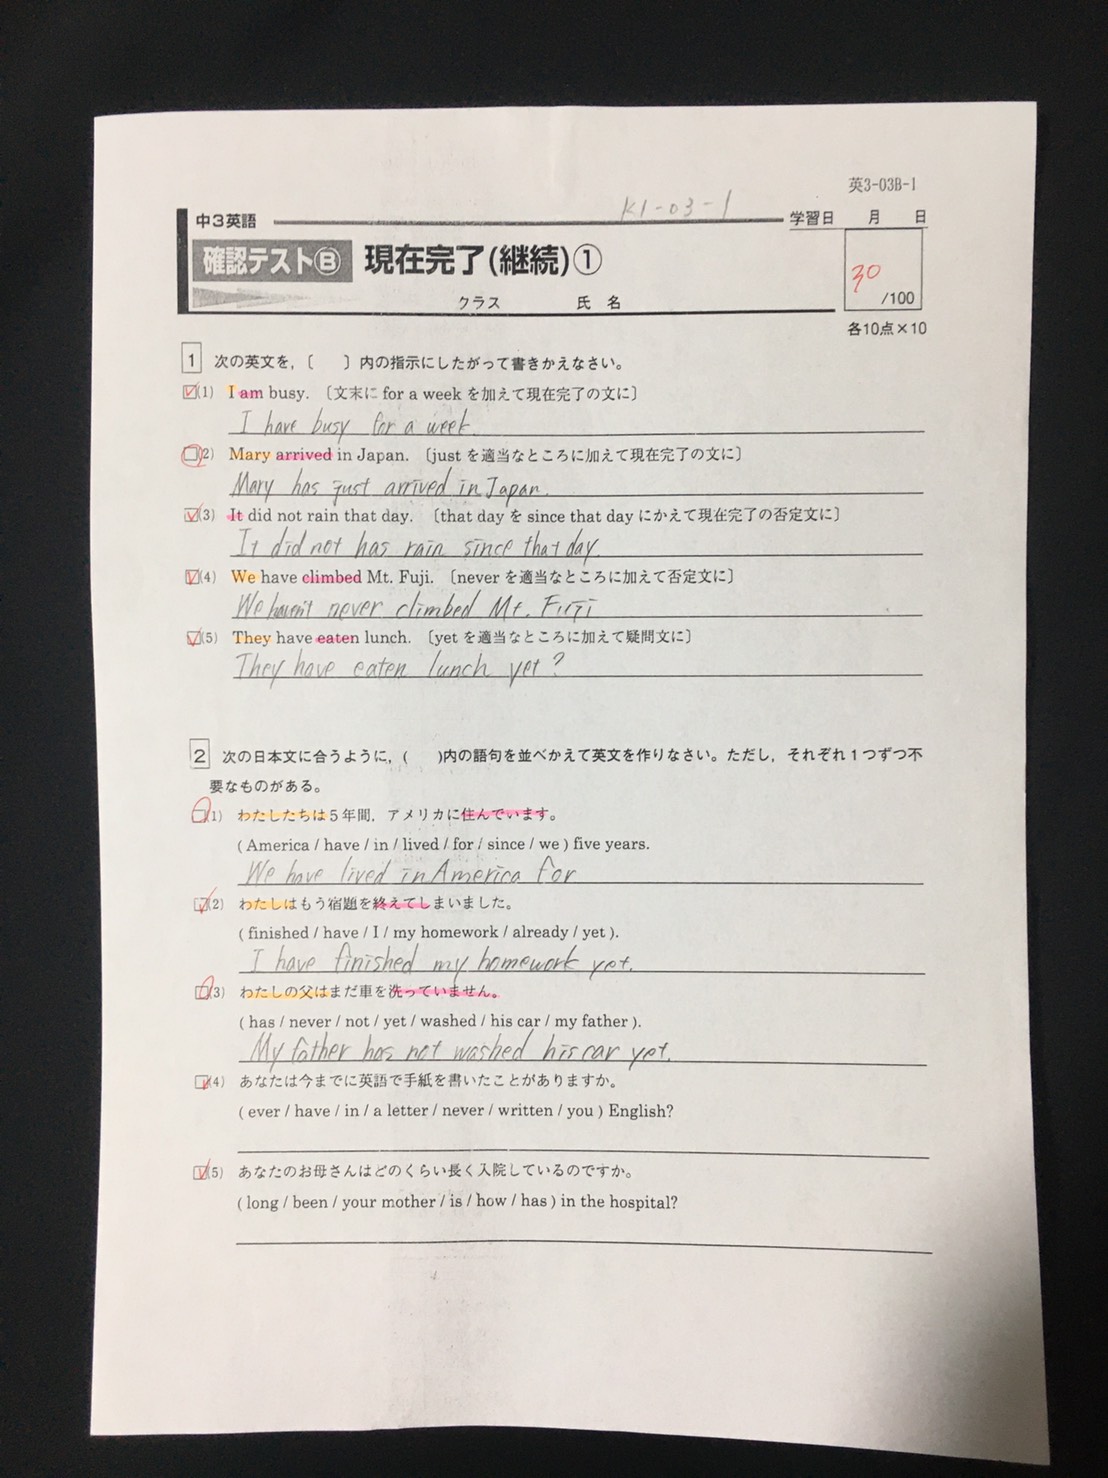 英3-03B-1
K1-03-1
中3英語
学習日 月 日
確認テストⒷ 現在完了(継続)①
30
/100
クラス 氏 名
各10点×10
1 次の英文を,〔 〕内の指示にしたがって書きかえなさい。
(1) I am busy. 〔文末に for a week を加えて現在完了の文に〕
I have busy for a week.
(2) Mary arrived in Japan. 〔just を適当なところに加えて現在完了の文に〕
Mary has just arrived in Japan.
(3) It did not rain that day. 〔that day を since that day にかえて現在完了の否定文に〕
It did not has rain since that day.
(4) We have climbed Mt. Fuji. 〔never を適当なところに加えて否定文に〕
We haven't never climbed Mt. Fuji
(5) They have eaten lunch. 〔yet を適当なところに加えて疑問文に〕
They have eaten lunch yet?
2 次の日本文に合うように, ( )内の語句を並べかえて英文を作りなさい。ただし, それぞれ1つずつ不
要なものがある。
(1) わたしたちは5年間, アメリカに住んでいます。
( America / have / in / lived / for / since / we ) five years.
We have lived in America for
(2) わたしはもう宿題を終えてしまいました。
( finished / have / I / my homework / already / yet ).
I have finished my homework yet.
(3) わたしの父はまだ車を洗っていません。
( has / never / not / yet / washed / his car / my father ).
My father has not washed his car yet.
(4) あなたは今までに英語で手紙を書いたことがありますか。
( ever / have / in / a letter / never / written / you ) English?
(5) あなたのお母さんはどのくらい長く入院しているのですか。
( long / been / your mother / is / how / has ) in the hospital?